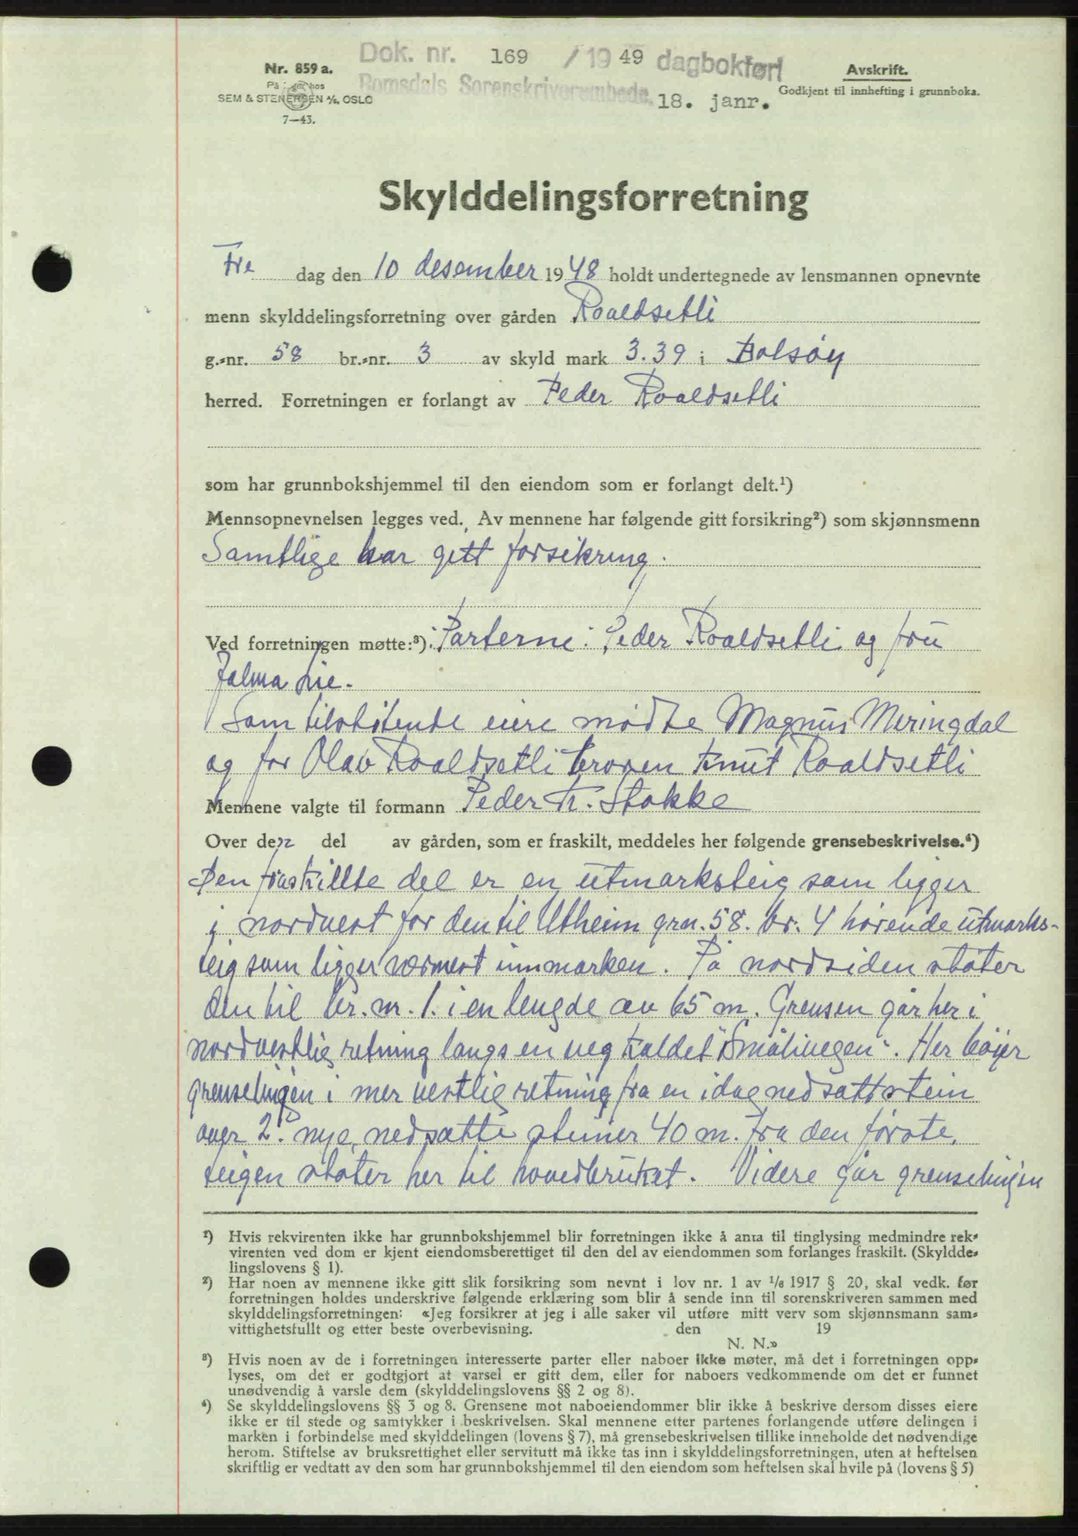 Dok. nr. 169 / 1949 dagbokført
Romsdals Sorenskriverembede. 18. janr.
Nr. 859 a.
SEM & STENERSEN A/S, OSLO
7—43.
Avskrift.
Godkjent til innhefting i grunnboka.
Skylddelingsforretning
Fre dag den 10 desember 1948 holdt undertegnede av lensmannen opnevnte
menn skylddelingsforretning over gården Roaldsetli
g.-nr. 58 br.-nr. 3 av skyld mark 3.39 i Bolsøy
herred. Forretningen er forlangt av Peder Roaldsetli
som har grunnbokshjemmel til den eiendom som er forlangt delt.¹)
Mennsopnevnelsen legges ved. Av mennene har følgende gitt forsikring²) som skjønnsmenn
Samtlige har gitt forsikring.
Ved forretningen møtte:³) Parterne: Peder Roaldsetli og fru
Jalma Lie.
Som tilstøtende eiere mødte Magnus Meringdal
og for Olav Roaldsetli broren Knut Roaldsetli
Mennene valgte til formann Peder Tr. Stokke
Over den del av gården, som er fraskilt, meddeles her følgende grensebeskrivelse.⁴)
Den fraskillte del er en utmarksteig som ligger
i nordvest for den til Utheim grn. 58. br. 4 hørende utmarks-
teig som ligger nærmest innmarken. På nordsiden støter
den til br. nr. 1. i en lengde av 65 m. Grensen går her i
nordvestlig retning langs en veg kaldet "Smålivegen". Her bøier
grenselinjen i mer vestlig retning fra en idag nedsatt stein
over 2. nye nedsatte steiner 40 m. fra den første.
teigen støter her til hovedbruket. Videre går grenselinjen
¹) Hvis rekvirenten ikke har grunnbokshjemmel blir forretningen ikke å anta til tinglysing medmindre rek-
virenten ved dom er kjent eiendomsberettiget til den del av eiendommen som forlanges fraskilt. (Skyldde-
lingslovens § 1).
²) Har noen av mennene ikke gitt slik forsikring som nevnt i lov nr. 1 av ¹/₆ 1917 § 20, skal vedk. før
forretningen holdes underskrive følgende erklæring som blir å sende inn til sorenskriveren sammen med
skylddelingsforretningen: «Jeg forsikrer at jeg i alle saker vil utføre mitt verv som skjønnsmann sam-
vittighetsfullt og etter beste overbevisning. den 19
N. N.»
³) Hvis noen av de i forretningen interesserte parter eller naboer ikke møter, må det i forretningen opp-
lyses, om det er godtgjort at varsel er gitt dem, eller for naboers vedkommende om det er funnet
unødvendig å varsle dem (skylddelingslovens §§ 2 og 8).
⁴) Se skylddelingslovens §§ 3 og 8. Grensene mot naboeiendommer blir ikke å beskrive dersom disses eiere
ikke er til stede og samtykker i beskrivelsen. Skal mennene etter partenes forlangende utføre delingen i
marken i forbindelse med skylddelingen (lovens § 7), må grensebeskrivelsen tillike inneholde det nødvendige
herom. Stiftelse av bruksrettighet eller servitutt må ikke tas inn i skylddelingsforretningen, uten at heftelsen
skriftlig er vedtatt av den som har grunnbokshjemmel til den eiendom som heftelsen skal hvile på (lovens § 5)